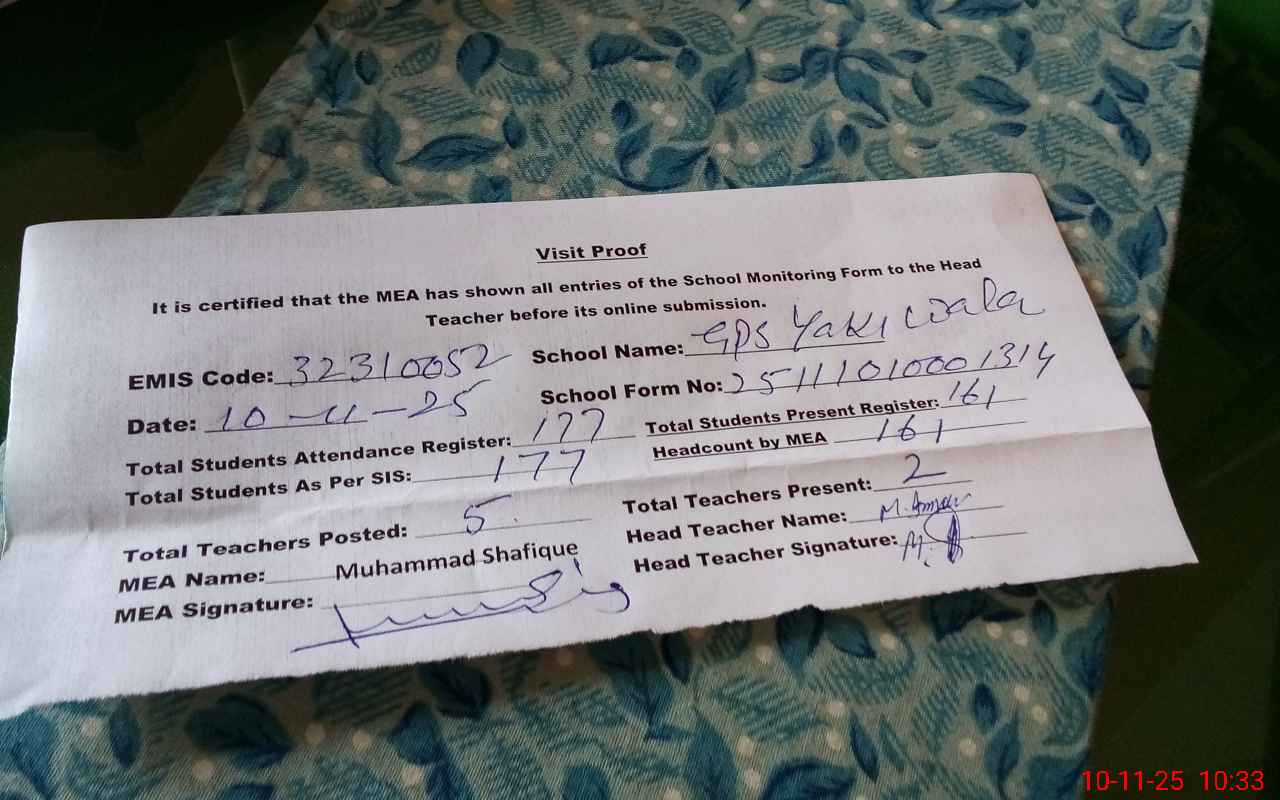 Visit Proof
It is certified that the MEA has shown all entries of the School Monitoring Form to the Head
Teacher before its online submission.
EMIS Code: 32310052 School Name: GPS Yaki wala
Date: 10-11-25 School Form No: 25111010001314
Total Students Attendance Register: 177 Total Students Present Register: 161
Total Students As Per SIS: 177 Headcount by MEA 161
Total Teachers Posted: 5 Total Teachers Present: 2
MEA Name: Muhammad Shafique Head Teacher Name: M.
MEA Signature: Head Teacher Signature: M.
10-11-25 10:33